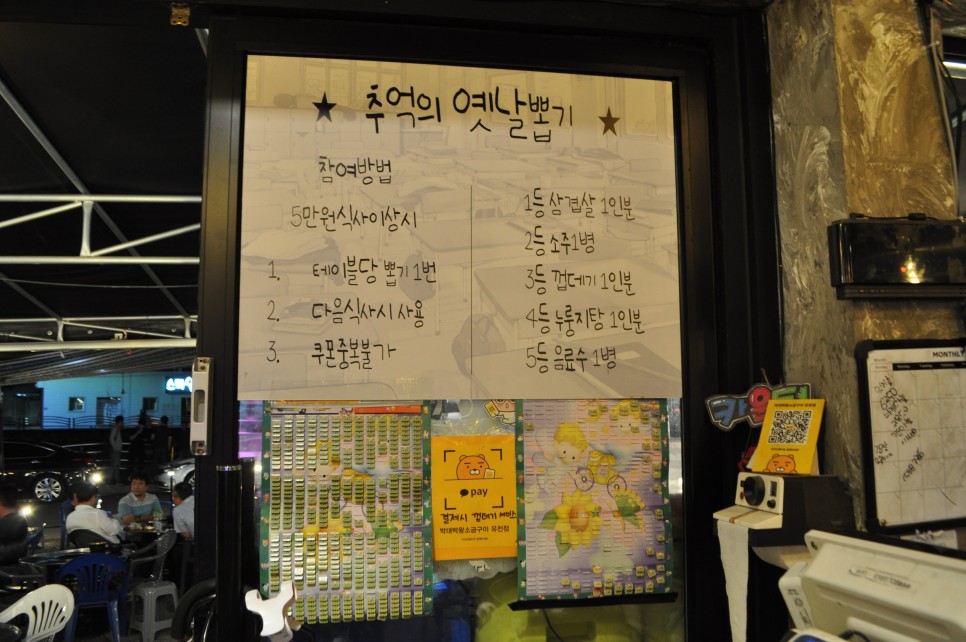 ★ 추억의 옛날뽑기 ★
참여방법
5만원식사이상시
1. 테이블당 뽑기 1번
2. 다음식사시 사용
3. 쿠폰중복불가
1등 삼겹살 1인분
2등 소주1병
3등 껍데기 1인분
4등 누룽지탕 1인분
5등 음료수 1병
pay
결제시 껍데기 서비스
박대박왕소금구이 유천점
MONTHLY